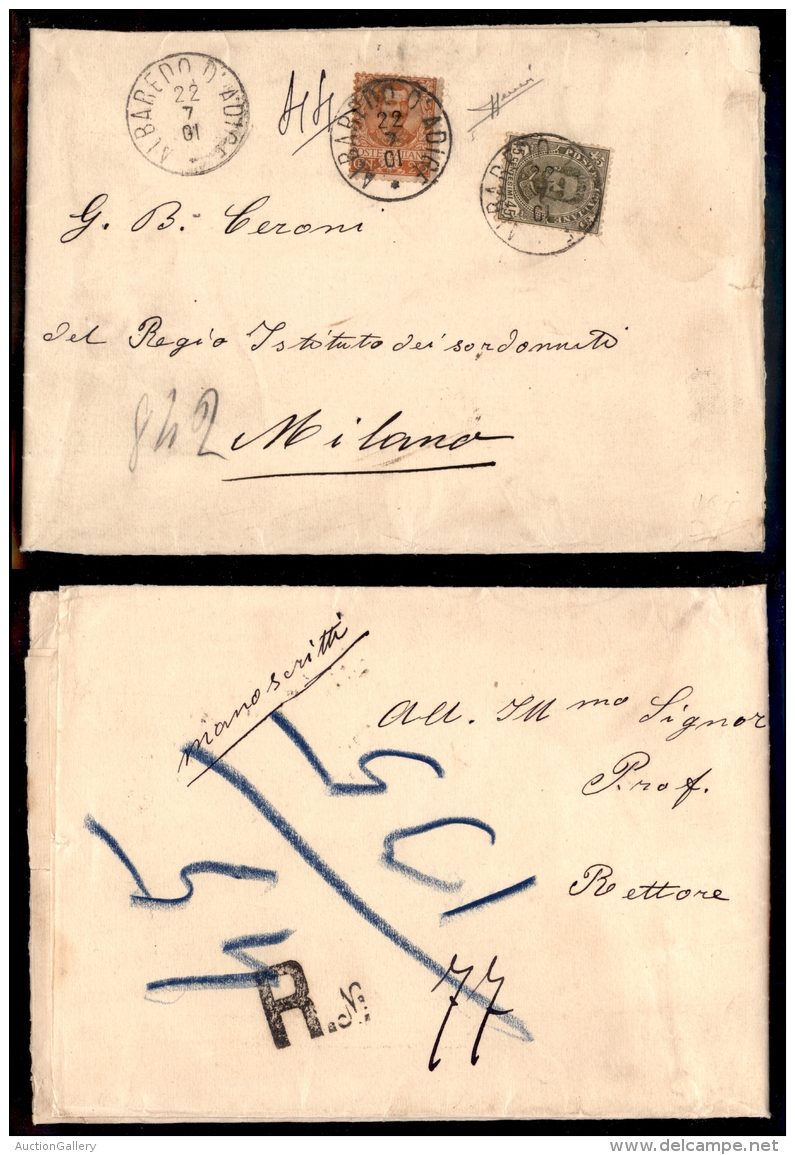 ALBAREDO D'ADIGE
22
7
01
44
ALBAREDO D'ADIGE
22
7
01
POSTE ITALIANE
ALBAREDO
22
01
45
G. B. Ceroni
del Regio Istituto dei sordomuti
842 Milano
manoscritti
All. Ill mo Signor
Prof.
Rettore
45
105
R. N.
77
AuctionGallery
www.delcampe.net